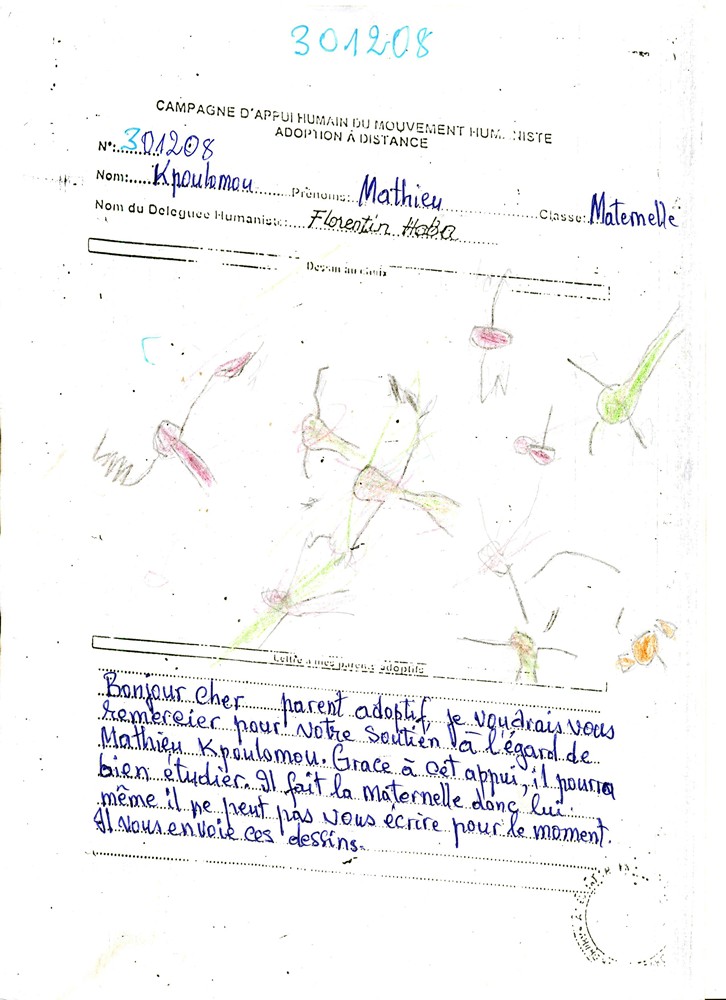 301208
CAMPAGNE D'APPUI HUMAIN DU MOUVEMENT HUMANISTE
ADOPTION À DISTANCE
N°:......301208
Nom:.....Kpoulomou........Prénoms: Mathieu..................Classe: Maternelle
Nom du Délégué Humaniste:....Florentin Haba
Dessin au choix
Lettre à mes parents adoptifs
Bonjour cher parent adoptif, je voudrais vous
remercier pour votre soutien à l'égard de
Mathieu Kpoulomou. Grace à cet appui, il pourra
bien étudier. Il fait la maternelle donc lui
même il ne peut pas vous écrire pour le moment.
Il vous envoie ces dessins.